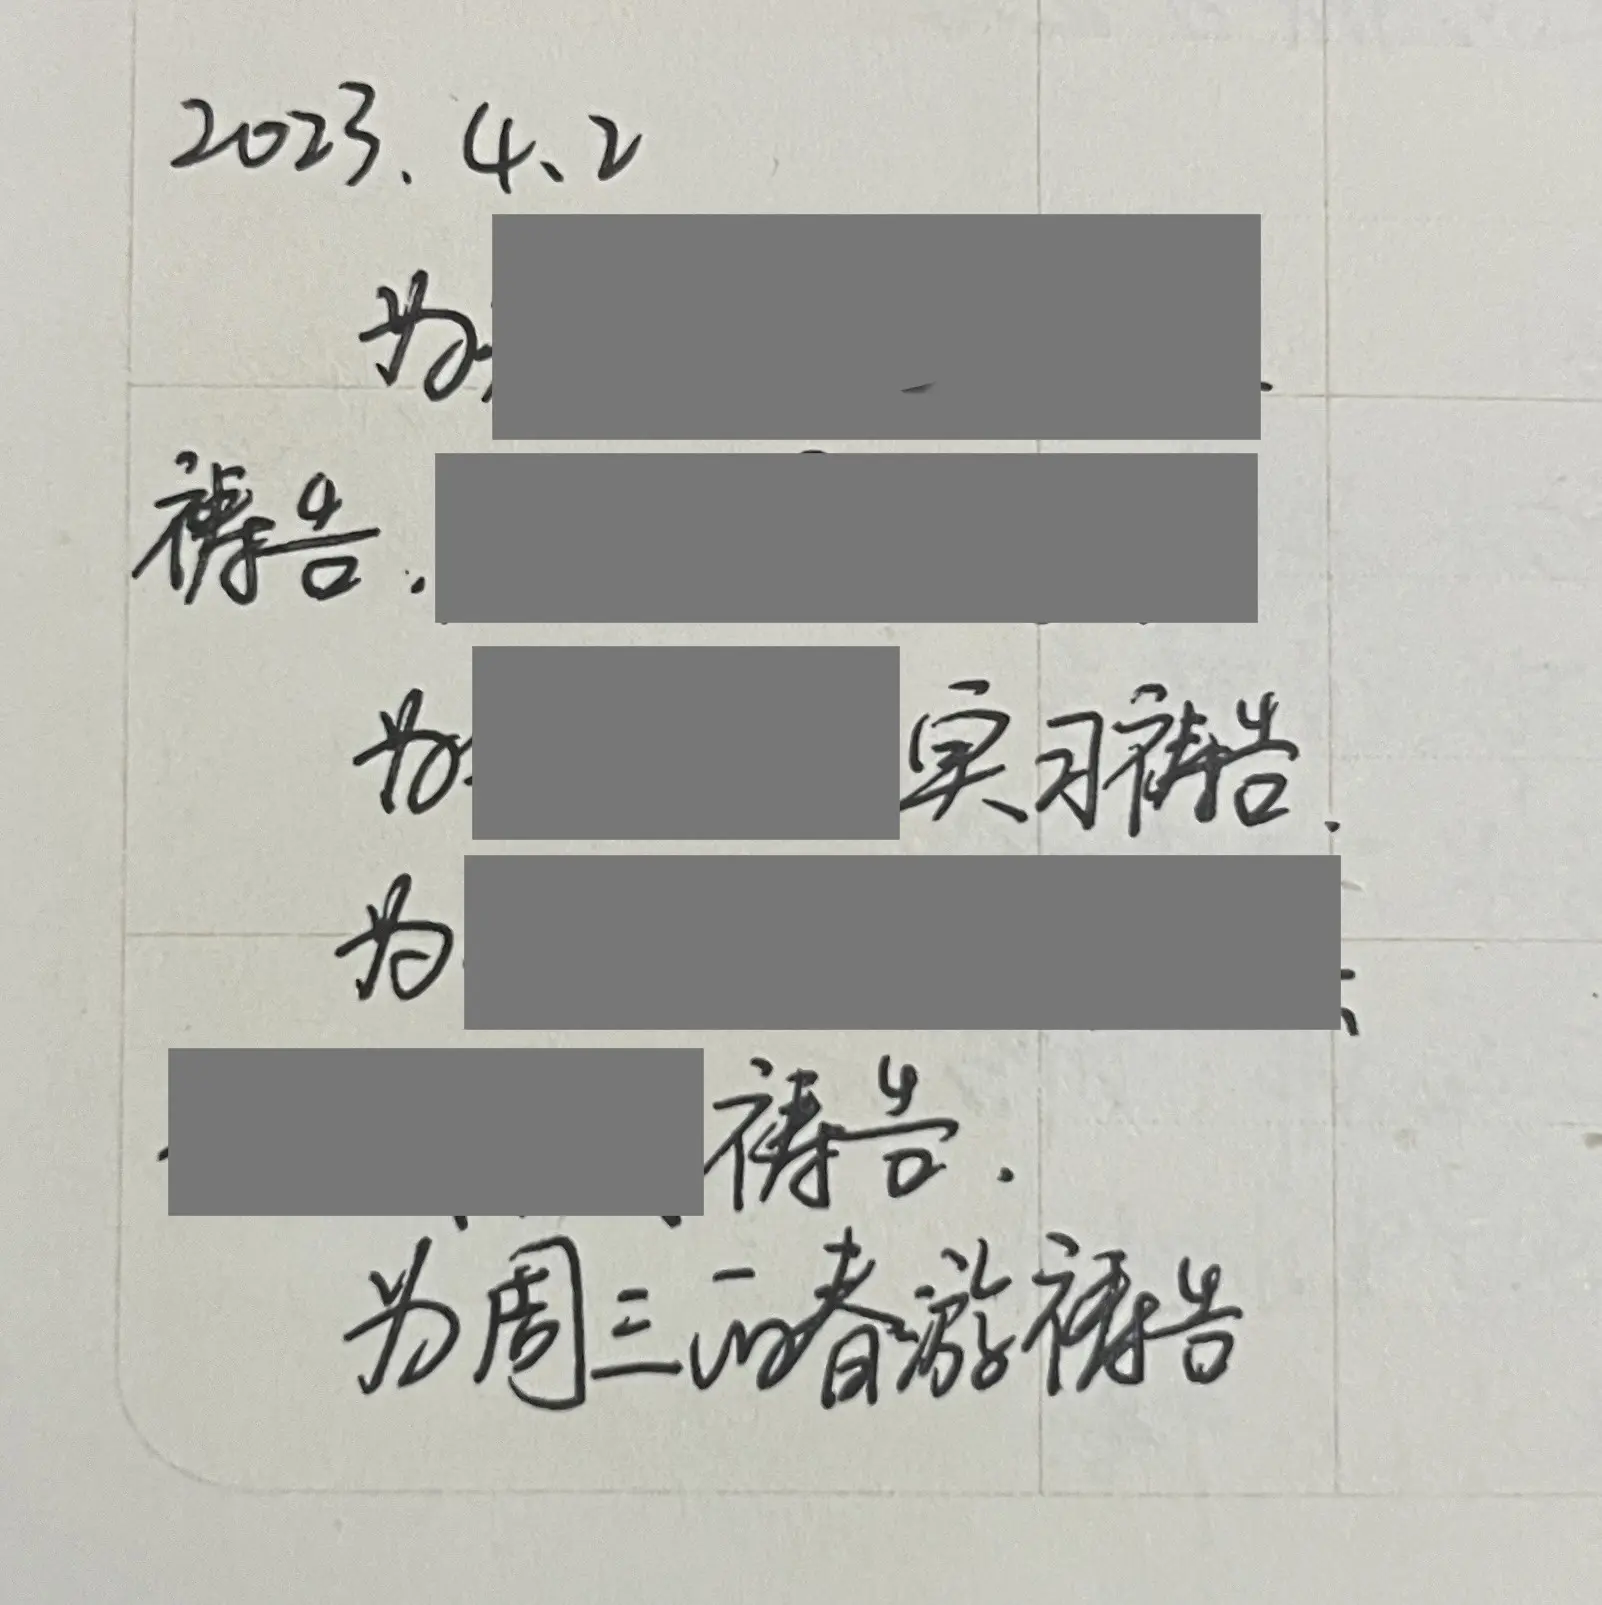 2023.4.2
为
祷告.
为 实习祷告.
为
祷告.
为周三的春游祷告